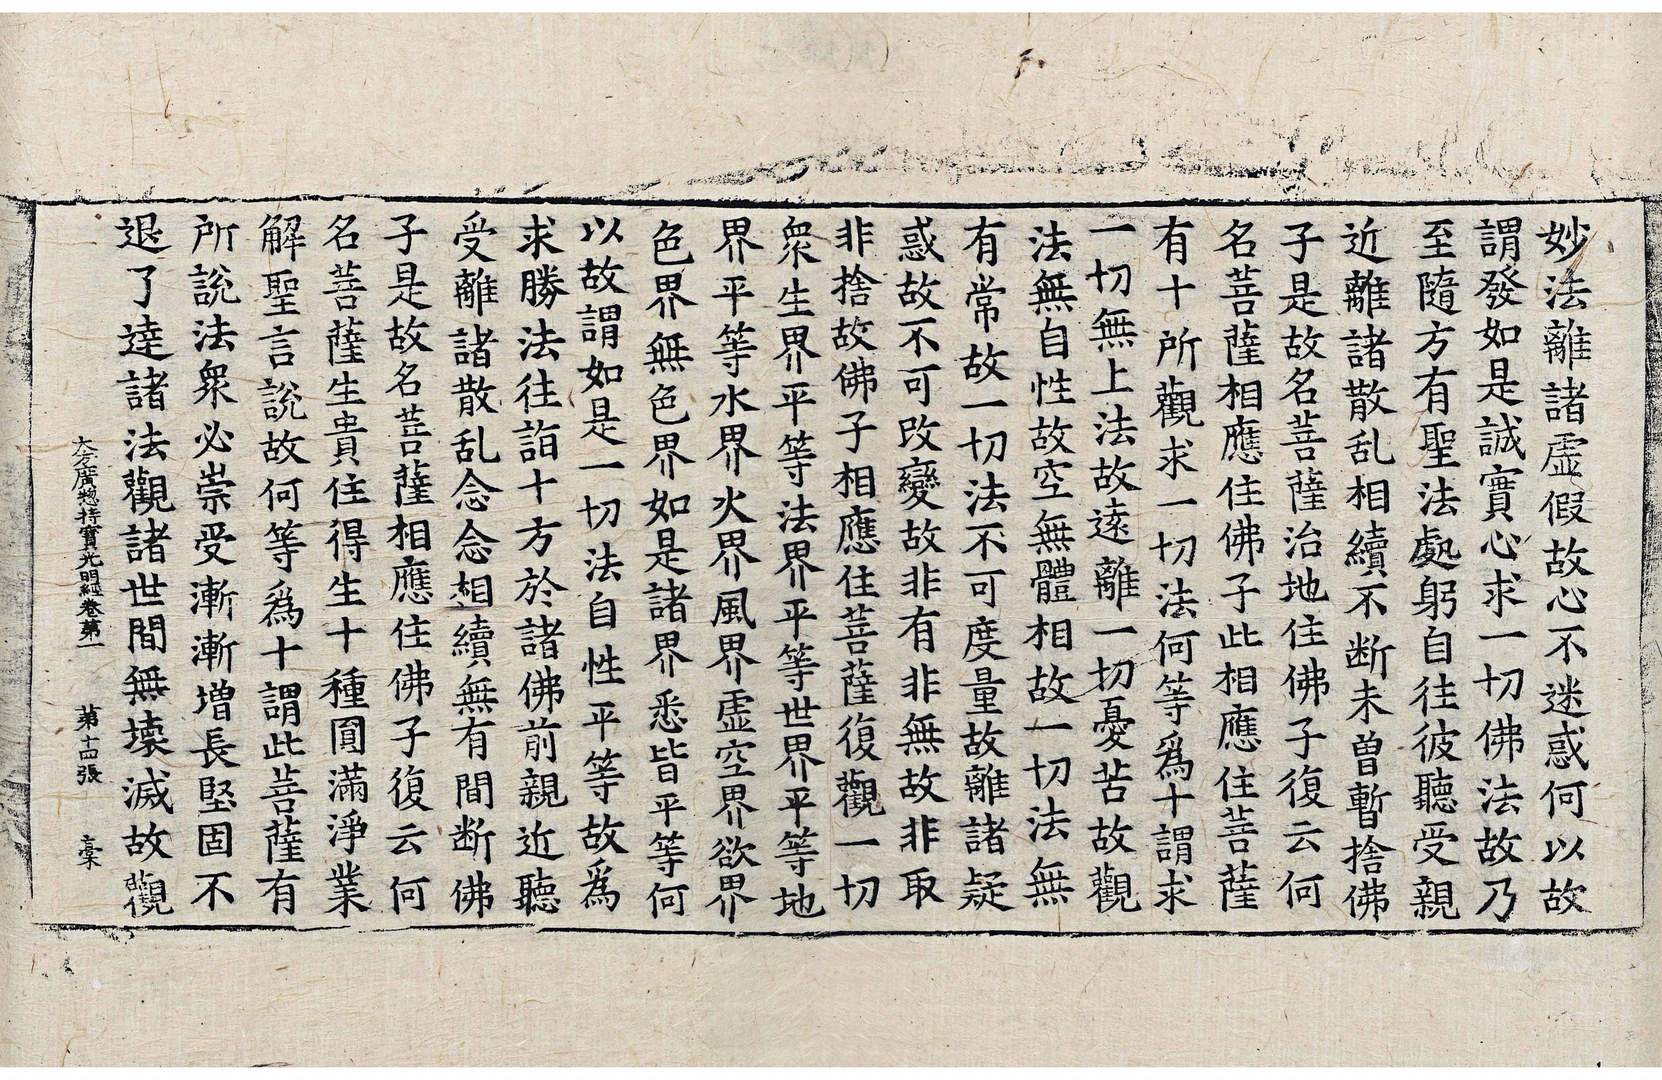 妙法離諸虛假故心不迷惑何以故
謂發如是誠實心求一切佛法故乃
至隨方有聖法處躬自往彼聽受親
近離諸散乱相續不断未曾暫捨佛
子是故名菩薩治地住佛子復云何
名菩薩相應住佛子此相應住菩薩
有十所觀求一切法何等爲十謂求
一切無上法故遠離一切憂苦故觀
法無自性故空無體相故一切法無
有常故一切法不可度量故離諸疑
惑故不可改變故非有非無故非取
非捨故佛子相應住菩薩復觀一切
衆生界平等法界平等世界平等地
界平等水界火界風界虛空界欲界
色界無色界如是諸界悉皆平等何
以故謂如是一切法自性平等故爲
求勝法往詣十方於諸佛前親近聽
受離諸散乱念念相續無有間断佛
子是故名菩薩相應住佛子復云何
名菩薩生貴住得生十種圓滿淨業
解聖言說故何等爲十謂此菩薩有
所說法衆必崇受漸漸增長堅固不
退了達諸法觀諸世間無壞滅故觀
大方廣惣持寶光明經卷第一 第十四張 槖